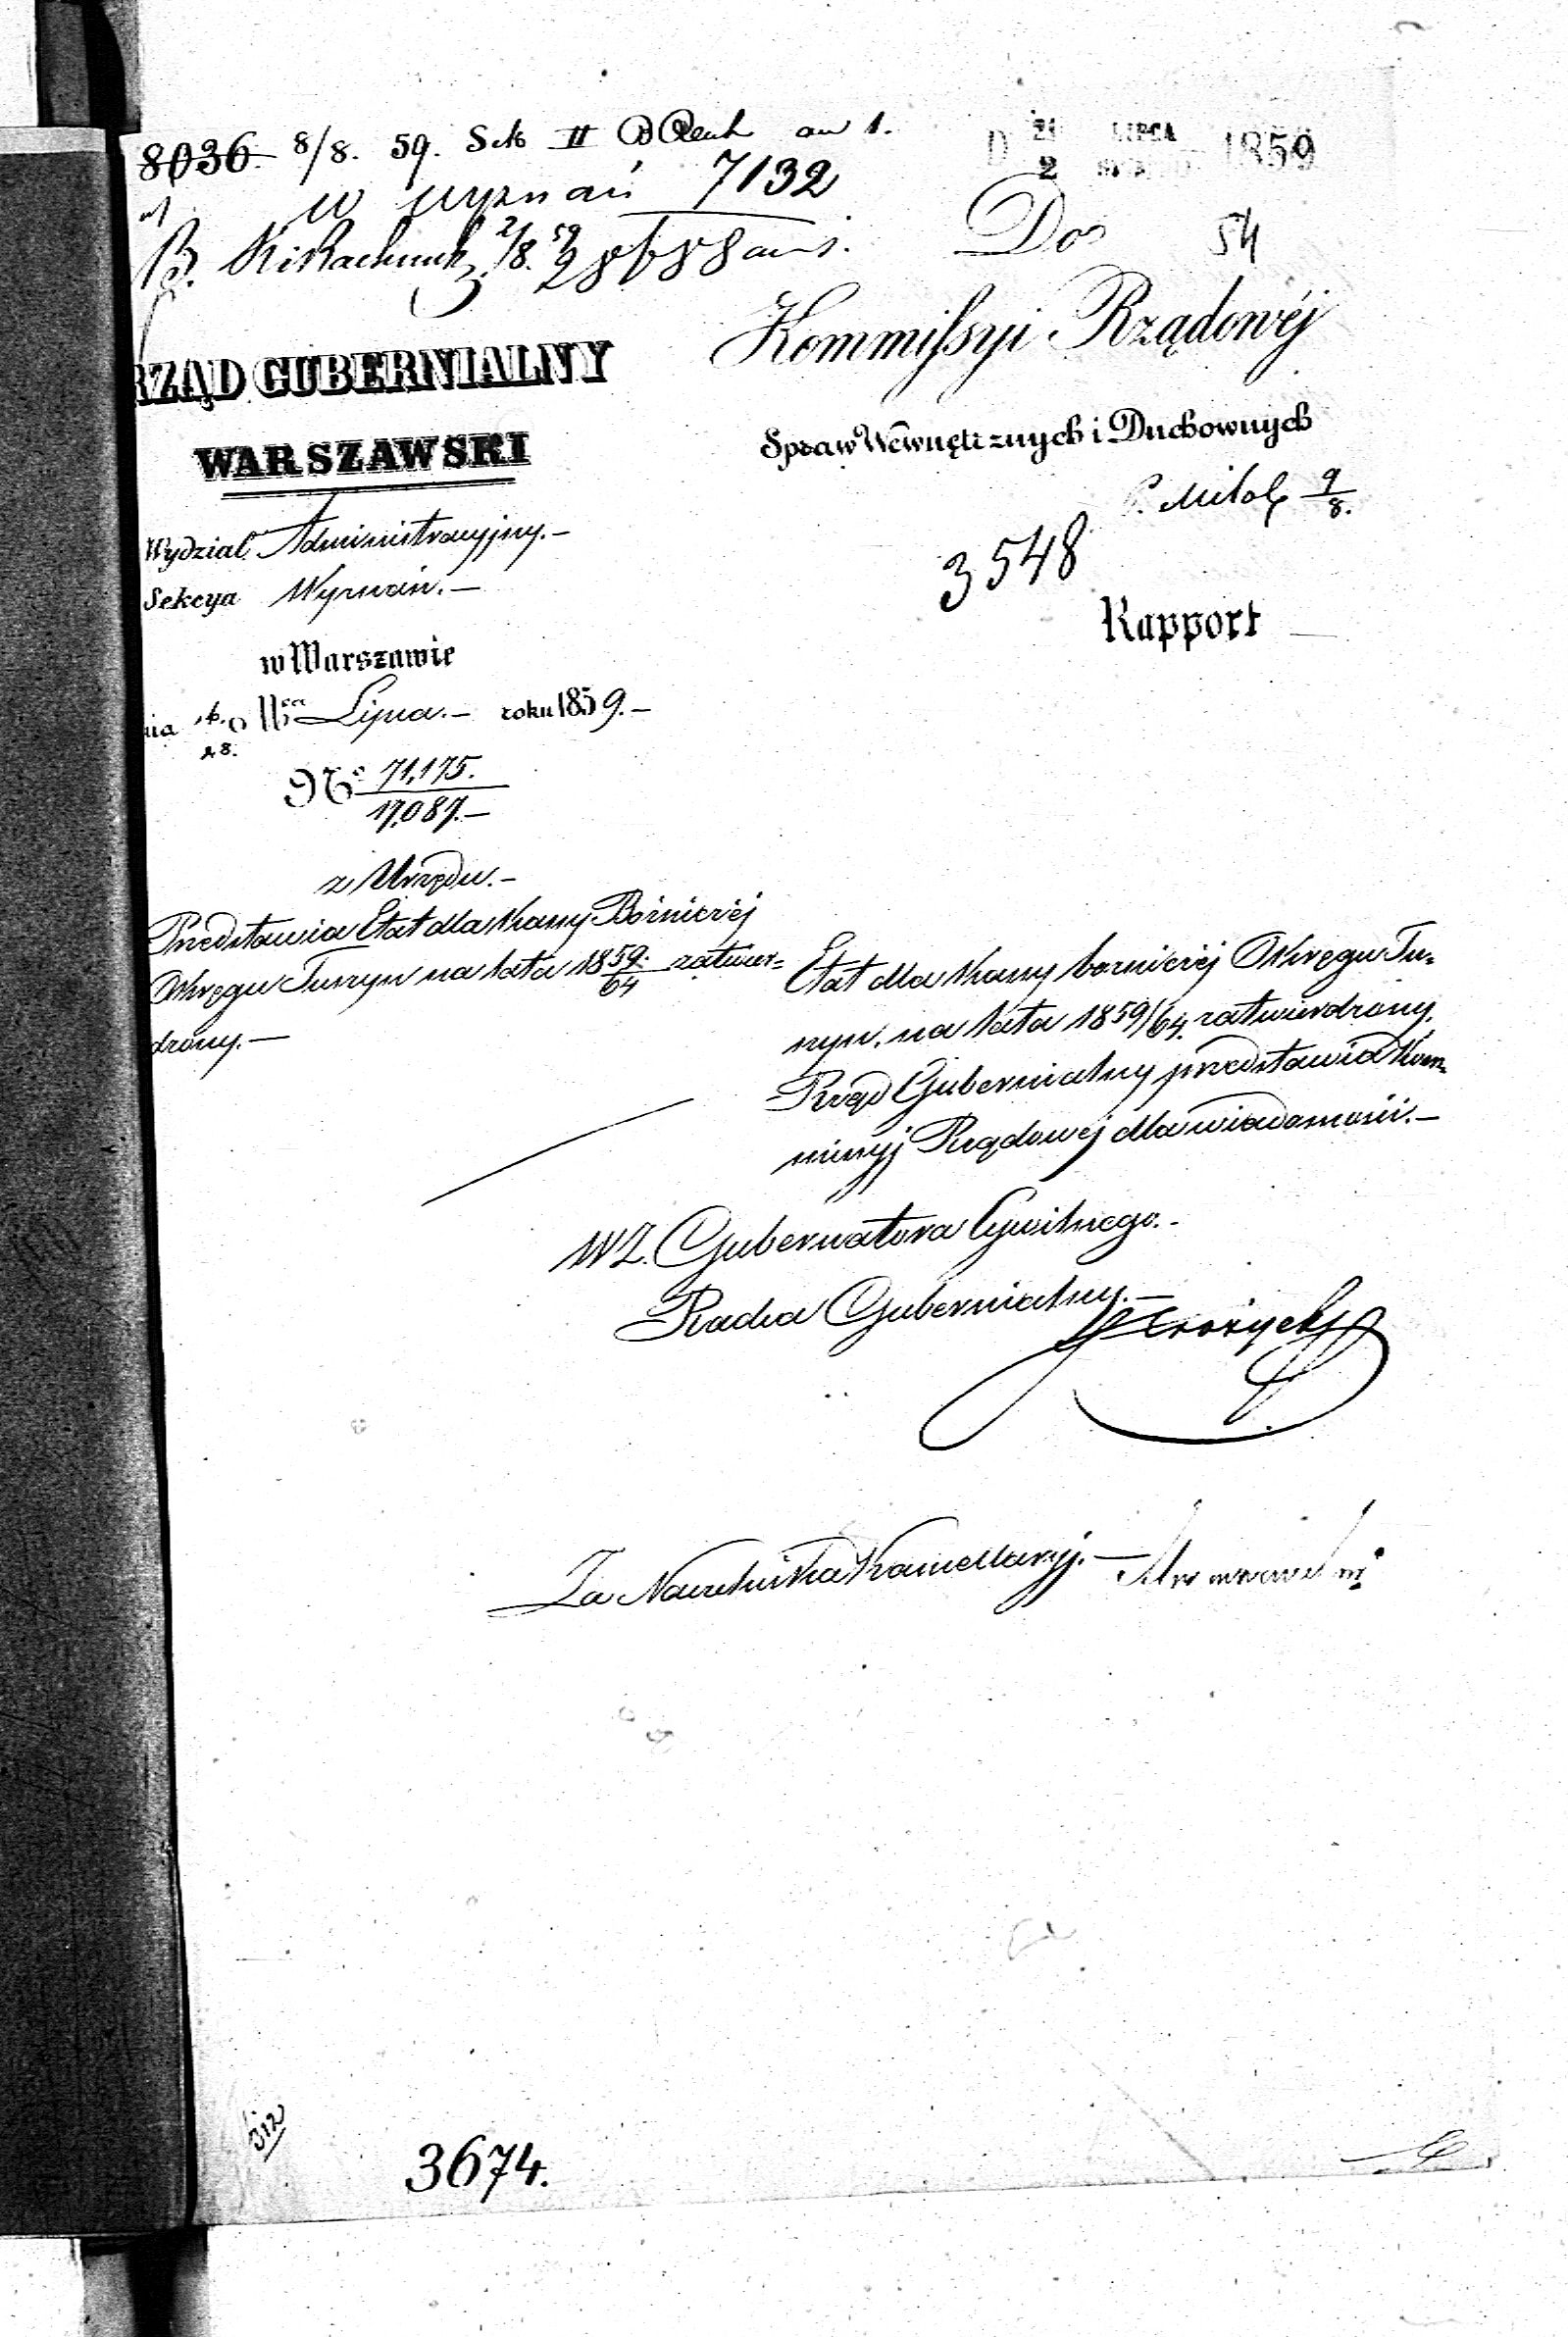 8036. 8/8. 59. Sek II
w wyznań 7132
D 21 LIPCA 1859
2
Do 54
Kommissyi Rządowéj
Spraw Wewnętrznych i Duchownych
9/8.
3548
Rapport
RZĄD GUBERNIALNY
WARSZAWSKI
Wydział Administracyjny.—
Sekcya Wyznań.—
w Warszawie
nia 16./28. Lipca.— roku 1859.—
No 71,175.
17,087.—
z Urzędu.—
Przedstawia Etat dla Kassy Bożniczéj
Okręgu Tuszyn na lata 1859/64 zatwier=
dzony.—
Etat dla Kassy bożniczéj Okręgu Tu=
szyn, na lata 1859/64. zatwierdzony,
Rząd Gubernialny przedstawia Kom=
missyj Rządowej dla wiadomości.—
WZ. Gubernatora Cywilnego.—
Radca Gubernialny.—
Za Naczelnika Kancellaryj.—
312
3674.